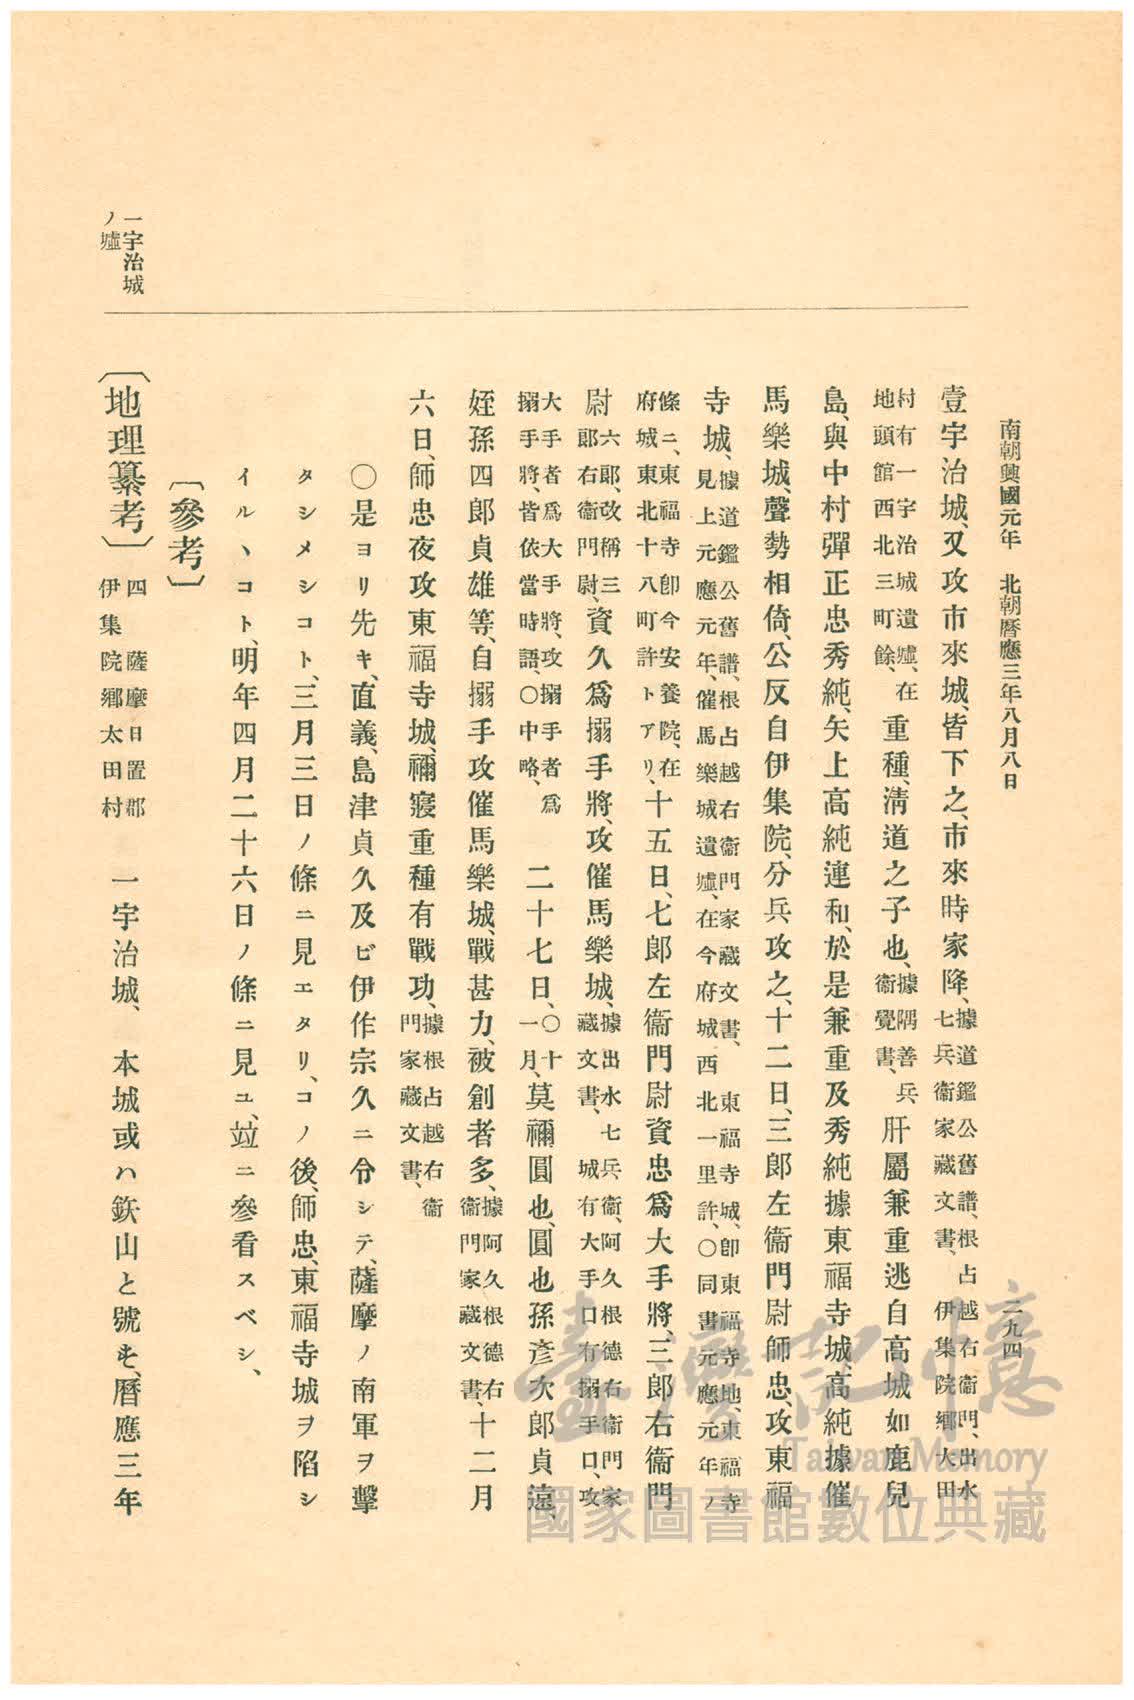 南朝興國元年　北朝曆應三年八月八日
二九四
壹宇治城、又攻市來城、皆下之、市來時家降、據道鑑公舊譜、根占越右衞門、出水七兵衞家藏文書、伊集院鄉大田
村有一宇治城遺墟、在地頭館西北三町餘、重種、淸道之子也、據隅善兵衞覺書、肝屬兼重逃自高城如鹿兒
島、與中村彈正忠秀純、矢上高純連和、於是兼重及秀純據東福寺城、高純據催
馬樂城、聲勢相倚、公反自伊集院、分兵攻之、十二日、三郞左衞門尉師忠、攻東福
寺城、據道鑑公舊譜、根占越右衞門家藏文書、東福寺城、卽東福寺地、東福寺見上元應元年、催馬樂城遺墟、在今府城西北一里許、〇同書元應元年ノ
條ニ、東福寺卽今安養院、在府城東北十八町許トアリ、十五日、七郞左衞門尉資忠爲大手將、三郞右衞門
尉六郞、改稱三郞右衞門尉、資久爲搦手將、攻催馬樂城、據出水七兵衞、阿久根德右衞門家藏文書、城有大手口有搦手口、攻
大手者爲大手將、攻搦手者爲搦手將、皆依當時語、〇中略、二十七日、〇十一月、莫禰圓也、圓也孫彥次郞貞遠、
姪孫四郞貞雄等、自搦手攻催馬樂城、戰甚力、被創者多、據阿久根德右衞門家藏文書、十二月
六日、師忠夜攻東福寺城、禰寢重種有戰功、據根占越右衞門家藏文書、
〇是ヨリ先キ、直義、島津貞久及ビ伊作宗久ニ令シテ、薩摩ノ南軍ヲ擊
タシメシコト、三月三日ノ條ニ見エタリ、コノ後、師忠、東福寺城ヲ陷シ
イルヽコト、明年四月二十六日ノ條ニ見ユ、竝ニ參看スベシ、
〔參考〕
一宇治城
ノ墟
〔地理纂考〕四 薩摩日置郡伊集院鄕太田村 一宇治城、本城或ハ鉃山と號も、曆應三年
臺灣記憶
Taiwan Memory
國家圖書館數位典藏